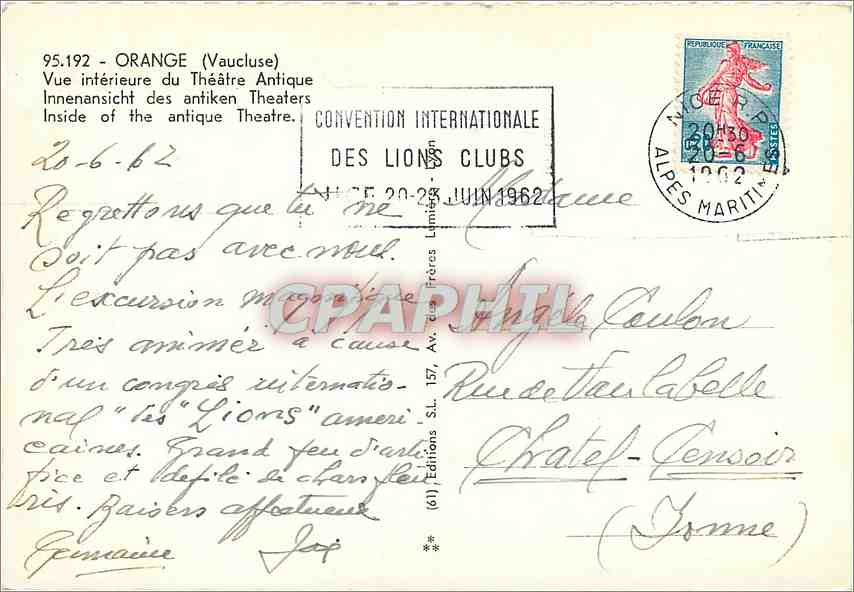 95.192 - ORANGE (Vaucluse)
Vue intérieure du Théâtre Antique
Innenansicht des antiken Theaters
Inside of the antique Theatre.
CONVENTION INTERNATIONALE
DES LIONS CLUBS
NICE 20-23 JUIN 1962
REPUBLIQUE FRANÇAISE
POSTES
NICE R.P.
20H30
20-6
1962
ALPES MARITIMES
20-6-62
Regrettons que tu ne
soit pas avec nous.
L'excursion magnifique
Très animée à cause
d'un congrès internatio-
nal "des "Lions" améri-
caines. Grand feu d'arti-
fice et défilé de chars fleu
ris. Baisers affectueux
Germaine
(61) Editions S.L. 157, Av. des Frères Lumière - Lyon
**
CPAPHIL
Madame
Angéla Coulon
Rue de Vaulabelle
Chatel-Censoir
(Yonne)